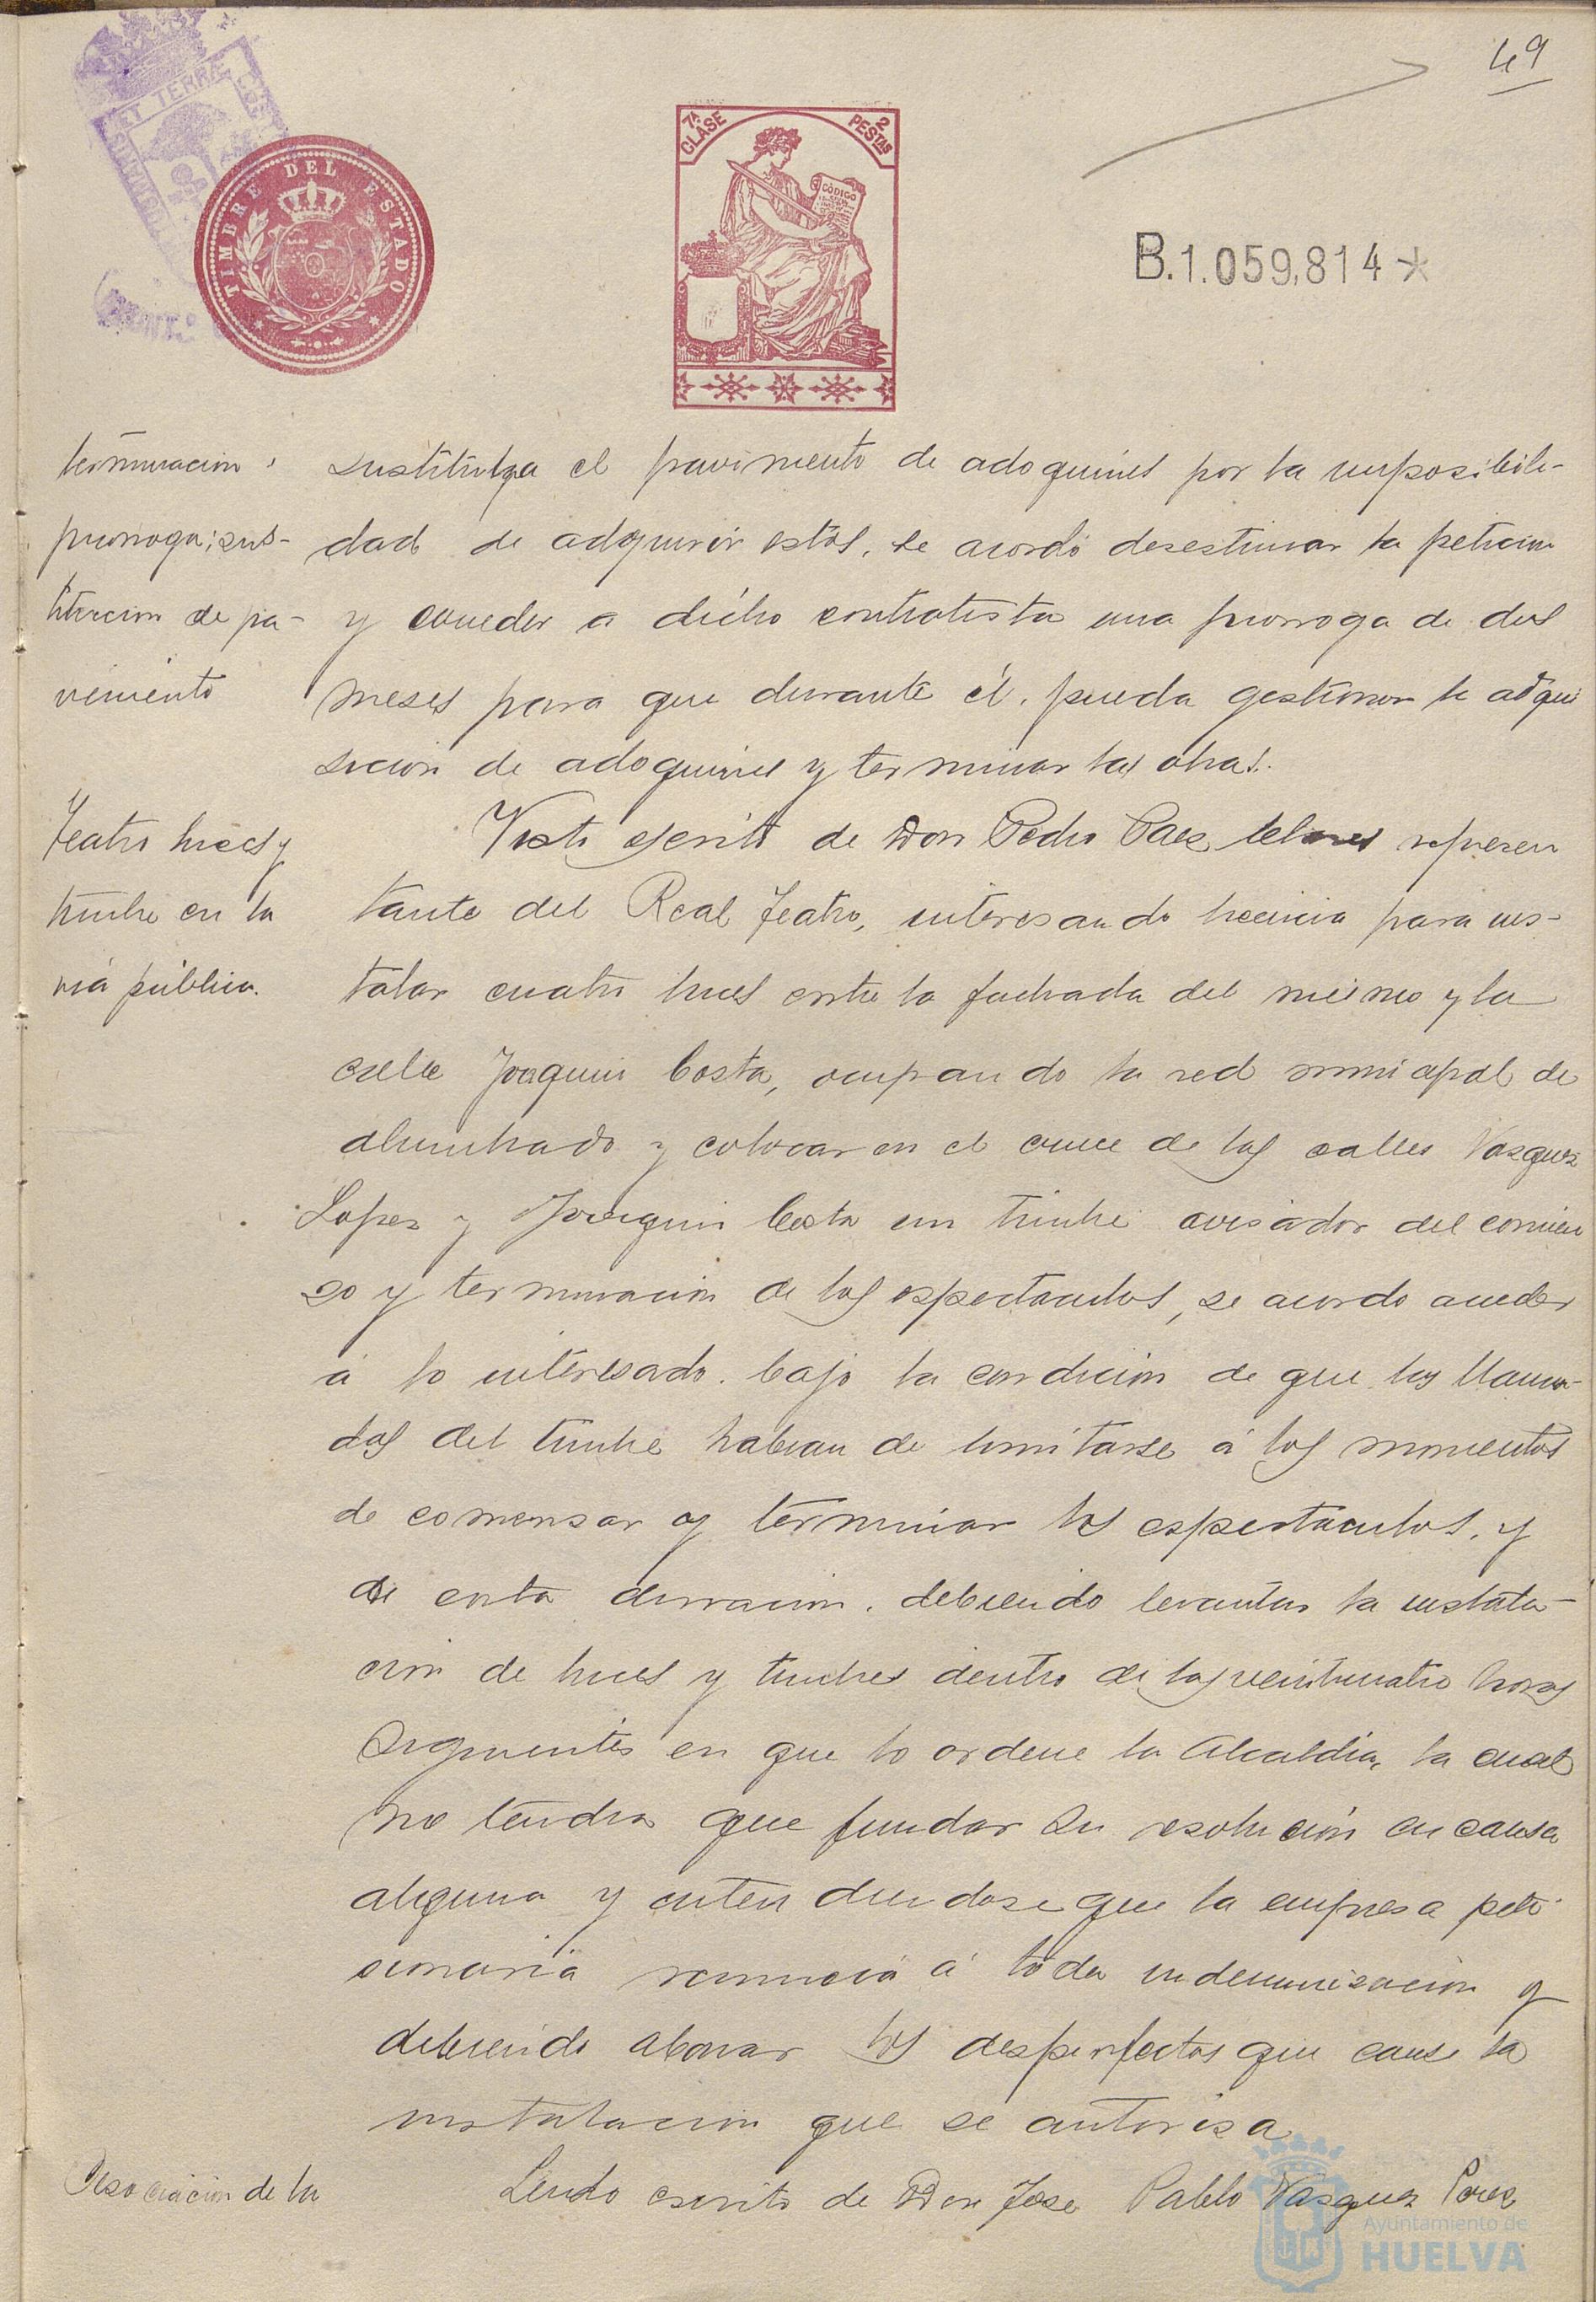 49
ET TERRÆ CUS
TIMBRE DEL ESTADO
7ª CLASE
2 PESTAS
CODIGO
B.1.059,814*
terminacion,
prorroga; sus-
titucion de pa-
vimento
sustituya el pavimento de adoquines por la imposibili-
dad de adquirir estos, se acordó desestimar la peticion
y conceder a dicho contratista una prorroga de dos
meses para que durante él, pueda gestionar la adqui
sicion de adoquines y terminar las obras.
Teatro luces y
timbre en la
via pública.
Visto escrito de Don Pedro Paez represen
tante del Real Teatro, interesando licencia para ins-
talar cuatro luces entre la fachada del mismo y la
calle Joaquin Costa, ocupando la red municipal de
alumbrado y colocar en el cruce de las calles Vasquez
Lopez y Joaquin Costa un timbre avisador del comien
zo y terminacion de los espectaculos, se acordo acceder
á lo interesado, bajo la condicion de que las llama-
das del timbre habian de limitarse á los momentos
de comensar y terminar los espectaculos, y
de corta duracion, debiendo levantar la instala-
cion de luces y timbres dentro de las veinticuatro horas
siguientes en que lo ordene la Alcaldia, la cual
no tendra que fundar su resolucion en causa
alguna y entendiendose que la empresa peti
cionaria renuncia á toda indemnisacion y
debiendo abonar los desperfectos que cause la
instalacion que se autorisa
Asociacion de la
Leido escrito de Don Jose Pablo Vasquez Perez
Ayuntamiento de
HUELVA